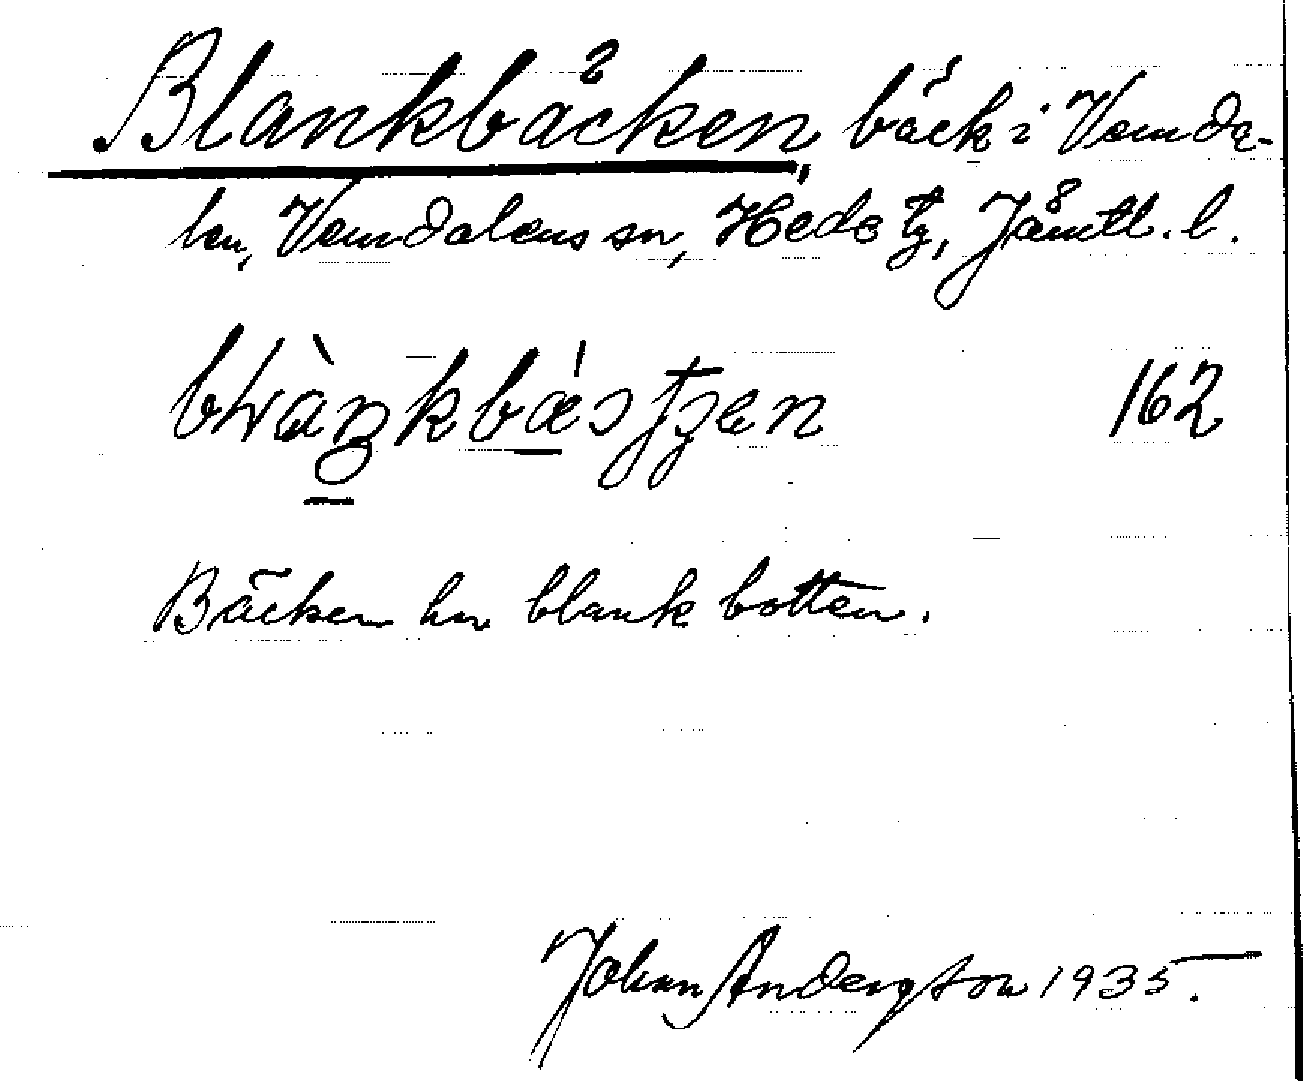 Blankbäcken, bäck i Vemda-
len, Vemdalens sn, Hede tg, Jämtl. l.
162
Bäcken har blank botten.
Johan Anderzson 1935.